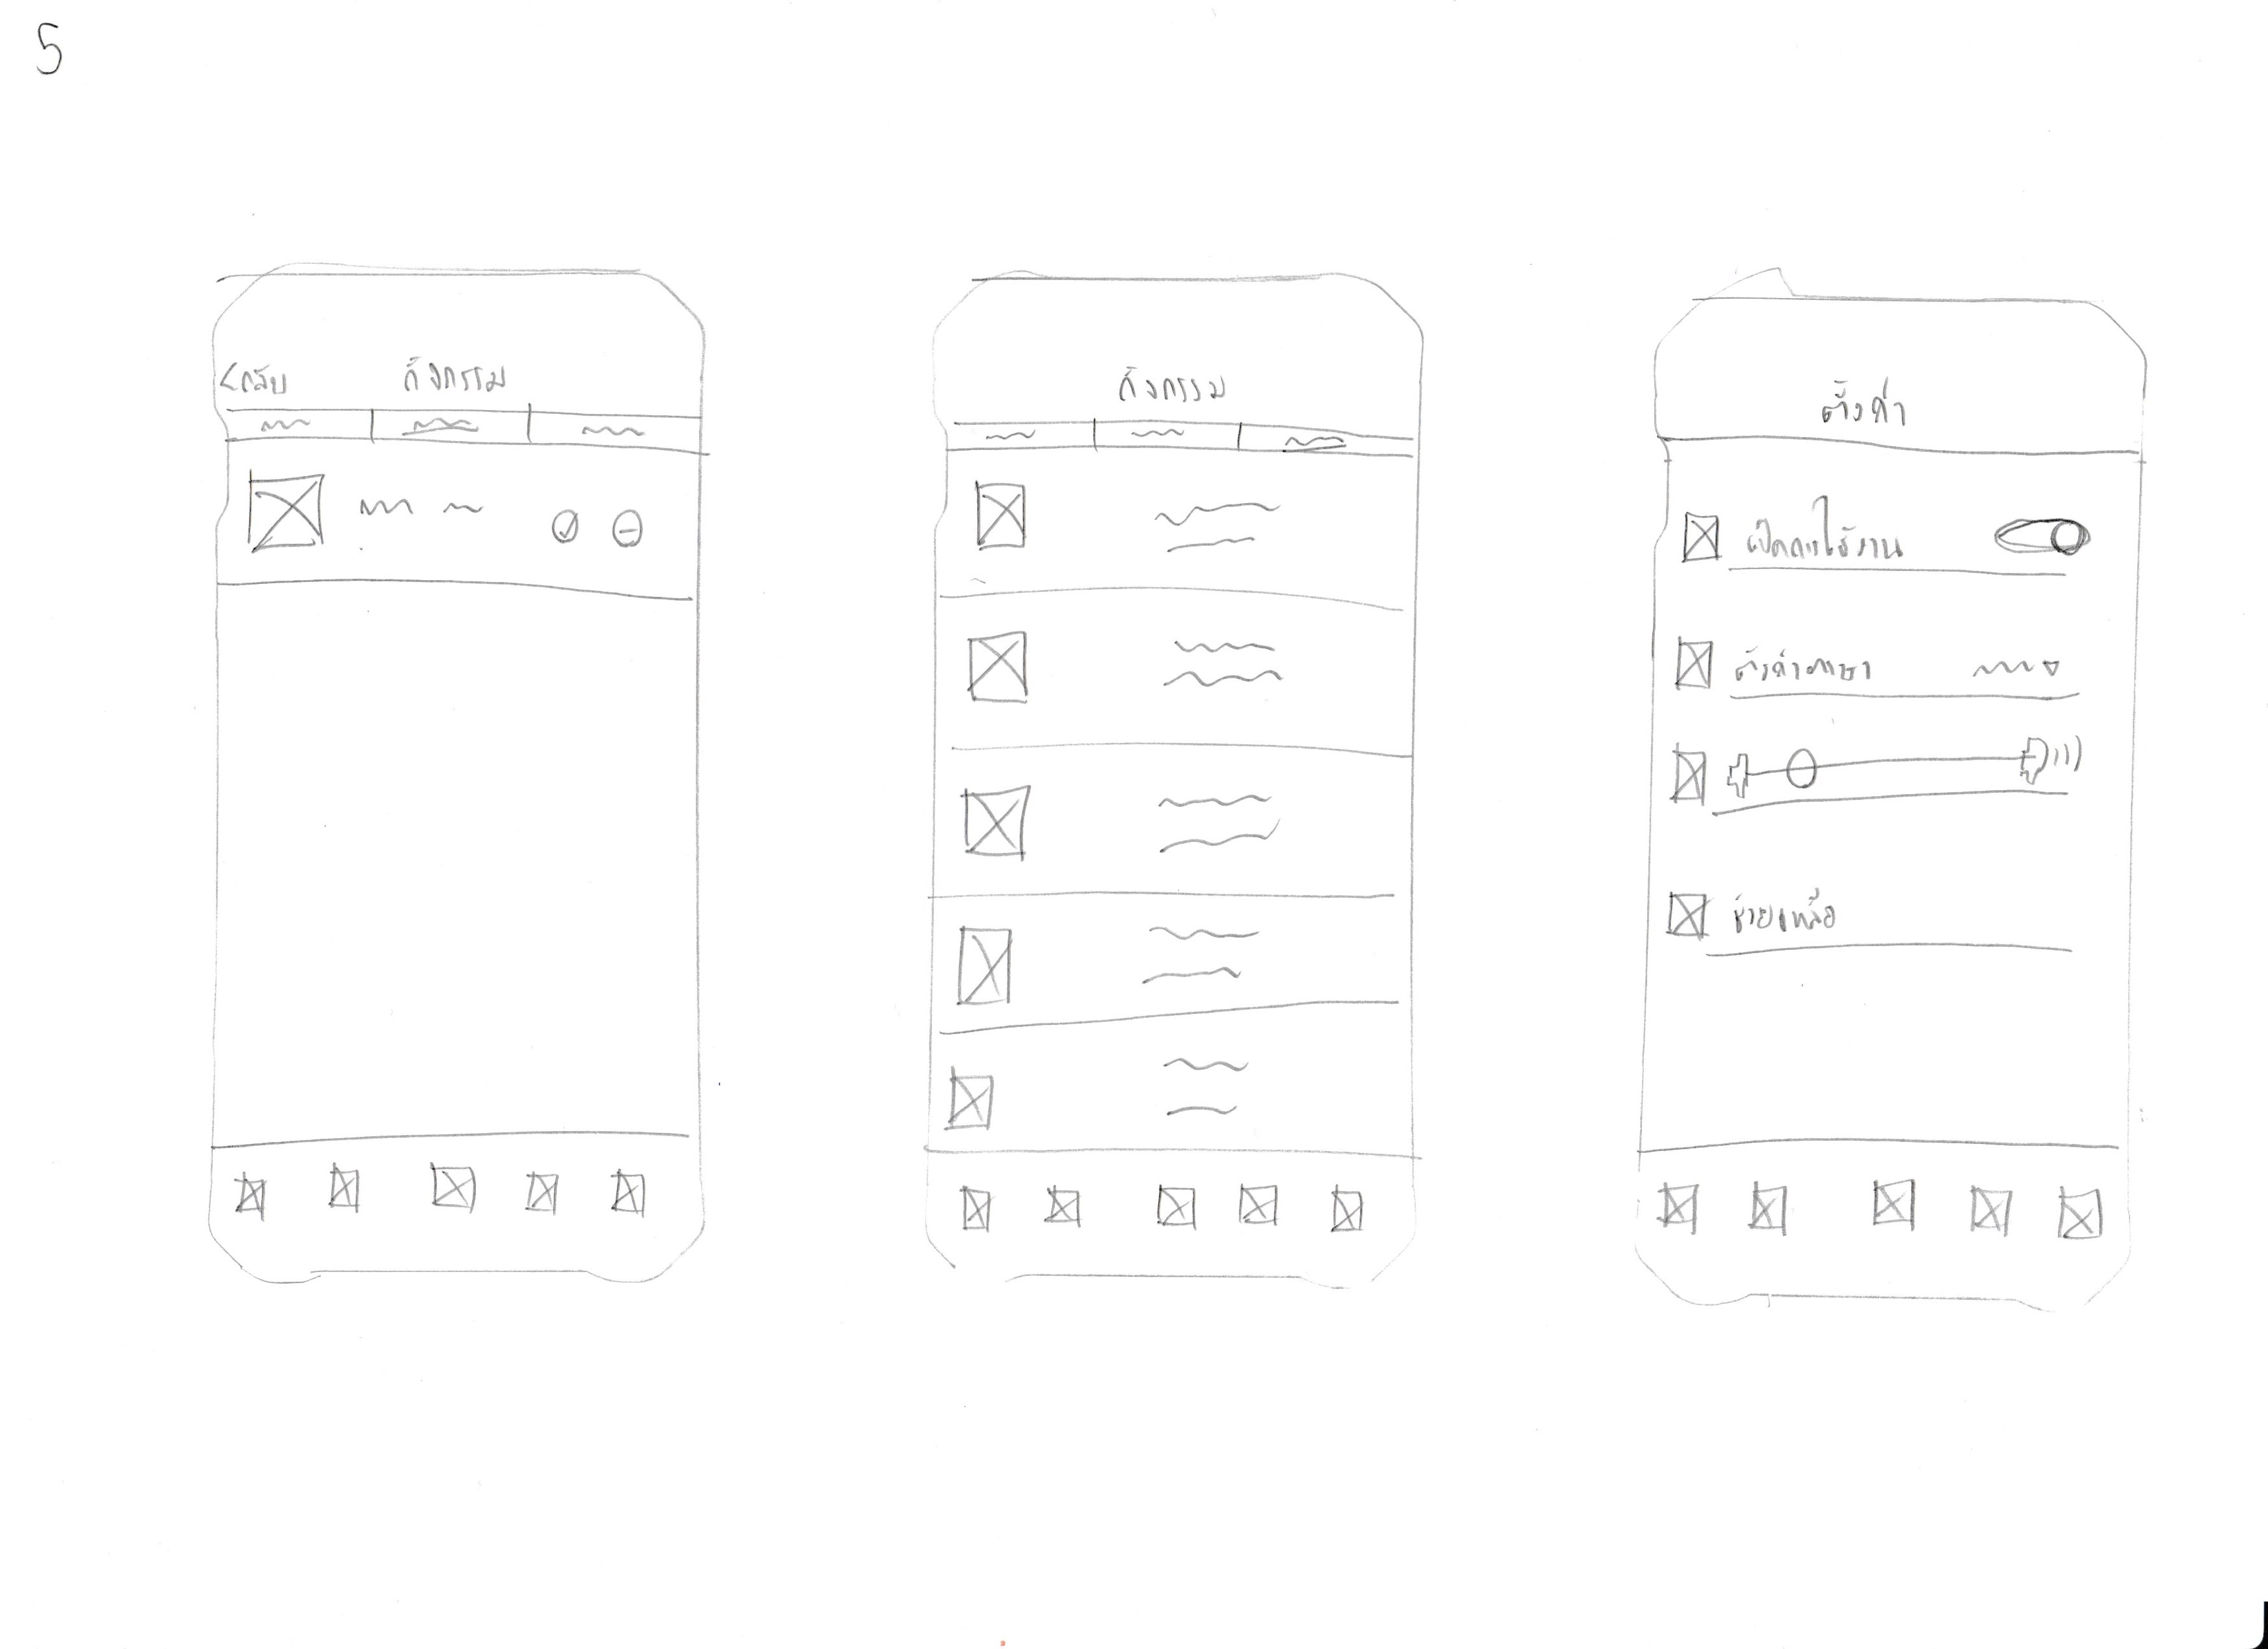 5
<กลับ
กิจกรรม
กิจกรรม
ตั้งค่า
เปิดการใช้งาน
ตั้งค่าภาษา
ช่วยเหลือ